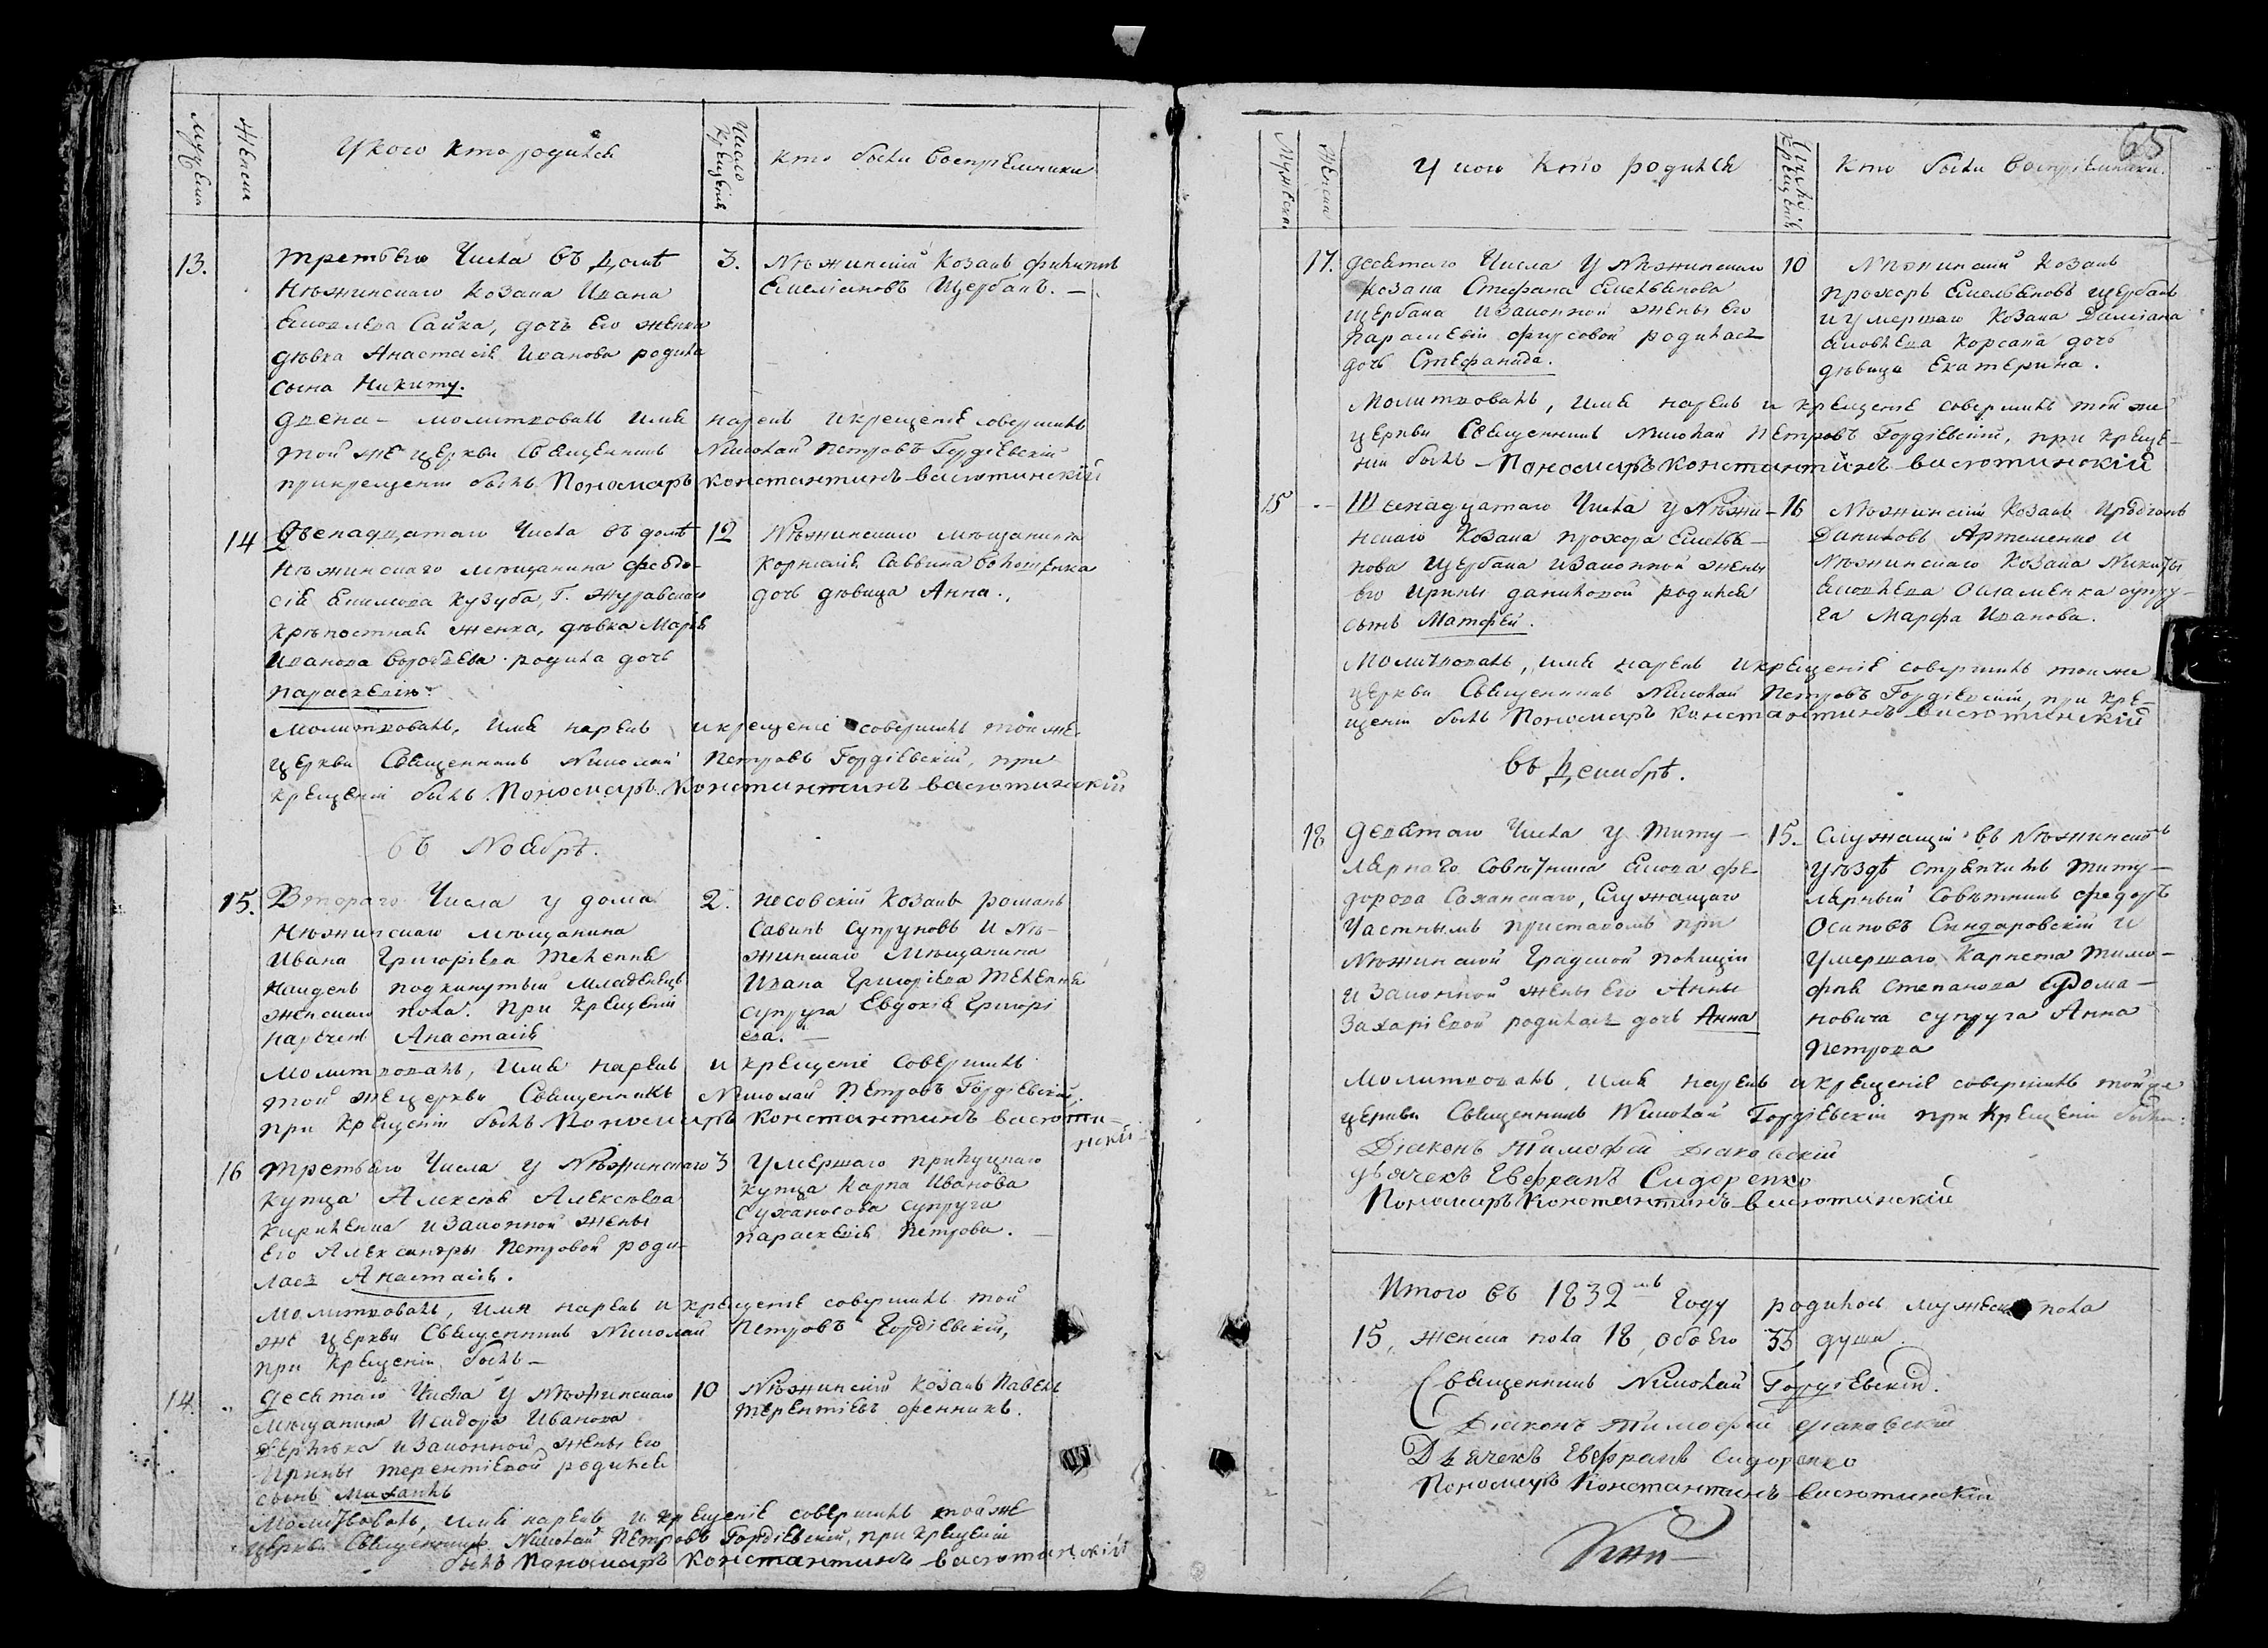 Мужеска
Женска
У кого кто родился
Число крещенія
Кто были воспріемники
13.
третьяго Числа въ домѣ
Нѣжинскаго Козака Ивана
Яковлева Сайка, дочь его женка
дѣвка Анастасія Иванова родила
сына Никиту.
3.
Нѣжинскій Козакъ Филипъ
Емеліановъ Щербакъ.
молитвовалъ имя нарекъ и крещеніе совершилъ
той же церкви Священникъ Николай Петровъ Гордіевскій
при крещеніи былъ Пономарь Константинъ Васютинскій
14
Двенадцатаго Числа въ домѣ
Нѣжинскаго мѣщанина Феодо-
сія Екимова Кузуба, Г. Журавскаго
крѣпостная женка, дѣвка Марія
Иванова родила дочь
Параскевію.
12
Нѣжинскаго мѣщанина
Корнилія Саввина
дочь дѣвица Анна.
Молитвовалъ, имя нарекъ и крещеніе совершилъ той же
церкви Священникъ Николай Петровъ Гордіевскій, при
крещеніи былъ Пономарь Константинъ Васютинскій
въ Ноябрѣ.
15.
Втораго Числа у дома
Нѣжинскаго мѣщанина
Ивана Григоріева
найденъ подкинутый младенецъ
женскаго пола. При крещеніи
наречен Анастасія
2.
Носовскій Козакъ Романъ
Савинъ Супруновъ и Нѣ-
жинскаго Мѣщанина
Ивана Григоріева
супруга Евдокія Григорі
ева.
Молитвовалъ, имя нарекъ и крещеніе совершилъ
той же церкви Священникъ Николай Петровъ Гордіевскій.
при крещеніи былъ Пономарь Константинъ Васюти-
нскій
16
третьяго Числа у Нѣжинскаго
купца Алексѣя Алексѣева
Кириленка и законной жены
его Александры Петровой роди-
лась Анастасія.
3
Умершаго прилуцкаго
купца Карпа Иванова
Суханосова супруга
Параскевія Петрова.
Молитвовалъ, имя нарекъ и крещеніе совершилъ той
же церкви Священникъ Николай Петровъ Гордіевскій,
при крещеніи былъ
14.
десятаго Числа у Нѣжинскаго
мѣщанина Исидора Иванова
и законной жены его
Ирины Терентіевой родился
сынъ Михаилъ
10
Нѣжинскій Козакъ Павелъ
Терентіевъ
Молитвовалъ, имя нарекъ и крещеніе совершилъ той же
церкви Священникъ Николай Петровъ Гордіевскій, при крещеніи
былъ Пономарь Константинъ Васютинскій
65
Мужеска
Женска
У кого кто родился
Число крещенія
Кто были воспріемники.
17.
десятаго Числа у Нѣжинскаго
Козака Стефана Емельянова
Щербака и законной жены его
Параскевіи Фирсовой родилась
дочь Стефанида.
10
Нѣжинскій Козакъ
Прохоръ Емельяновъ Щербакъ
и умершаго Козака Даміана
Яковлева Корсака дочь
дѣвица Екатерина.
Молитвовалъ, имя нарекъ и крещеніе совершилъ той же
церкви Священникъ Николай Петровъ Гордіевскій, при креще-
ніи былъ Пономарь Константинъ Васютинскій
15
Шеснадцатаго Числа у Нѣжи-
нскаго Козака Прохора Емелья-
нова Щербака и законной жены
его Ирины Даниловой родился
сынъ Матфей.
16
Нѣжинскій Козакъ
Даниловъ Артеменко и
Нѣжинскаго Козака Никиты
Яковлева супру-
га Марфа Иванова.
Молитвовалъ, имя нарекъ и крещеніе совершилъ той же
церкви Священникъ Николай Петровъ Гордіевскій, при кре-
щеніи былъ Пономарь Константинъ Васютинскій
въ Декабрѣ.
18
Девятаго Числа у титу-
лярнаго совѣтника Якова Фе-
дорова Саханскаго, служащаго
частнымъ приставомъ при
Нѣжинской Градской полиціи
и законной жены его Анны
Захаріевой родилась дочь Анна
15.
Служащій въ Нѣжинскомъ
уѣздѣ стряпчимъ титу-
лярный Совѣтникъ Федоръ
Осиповъ Синдаровскій и
умершаго Карнета Тимо-
фея Степанова Судома-
новича супруга Анна
Петрова
Молитвовалъ, имя нарекъ и крещеніе совершилъ той же
церкви Священникъ Николай Гордіевскій при крещеніи были:
Діаконъ Тимофей Діаковскій
Дьячекъ Евфранъ Сидоренко
Пономарь Константинъ Васютинскій
Итого въ 1832мъ году родилось мужеска пола
15, женска пола 18, обоего 33 душъ.
Священникъ Николай Гордіевскій.
Діаконъ Тимофей Діаковскій
Дьячекъ Евфранъ Сидоренко
Пономарь Константинъ Васютинскій